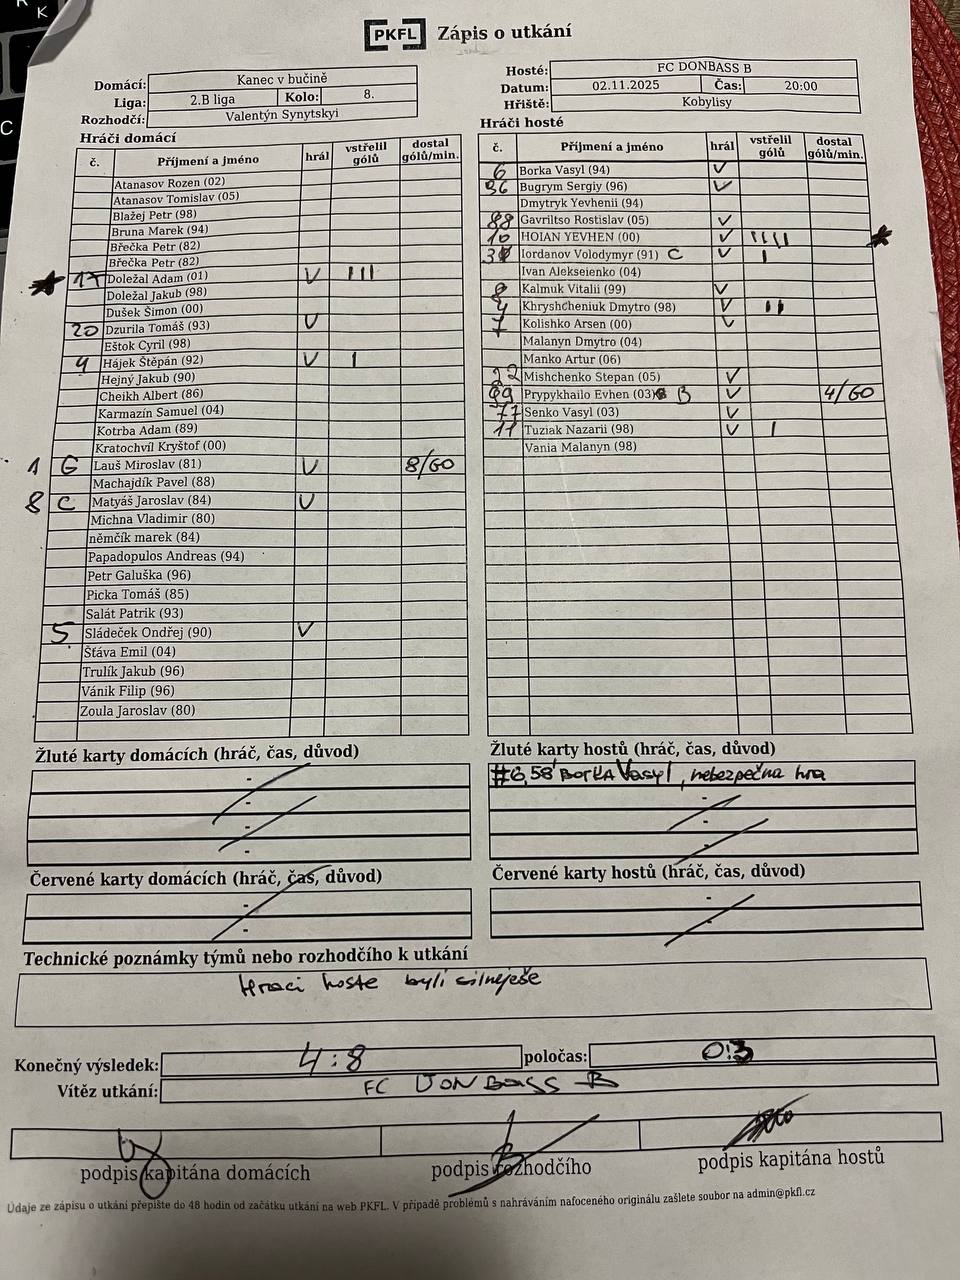 PKFL Zápis o utkání
Domácí: Kanec v bučině
Liga: 2.B liga Kolo: 8.
Rozhodčí: Valentýn Synytskyi
Hosté: FC DONBASS B
Datum: 02.11.2025 Čas: 20:00
Hřiště: Kobylisy
Hráči domácí
č. Příjmení a jméno hrál vstřelil gólů dostal gólů/min.
Atanasov Rozen (02)
Atanasov Tomislav (05)
Blažej Petr (98)
Bruna Marek (94)
Břečka Petr (82)
Břečka Petr (82)
17 Doležal Adam (01) V III
Doležal Jakub (98)
Dušek Šimon (00)
20 Dzurila Tomáš (93) V
Eštok Cyril (98)
4 Hájek Štěpán (92) V I
Hejný Jakub (90)
Cheikh Albert (86)
Karmazín Samuel (04)
Kotrba Adam (89)
Kratochvíl Kryštof (00)
1 G Lauš Miroslav (81) V 8/60
Machajdík Pavel (88)
8 C Matyáš Jaroslav (84) V
Michna Vladimir (80)
němčík marek (84)
Papadopulos Andreas (94)
Petr Galuška (96)
Picka Tomáš (85)
Salát Patrik (93)
5 Sládeček Ondřej (90) V
Šťáva Emil (04)
Trulík Jakub (96)
Vánik Filip (96)
Zoula Jaroslav (80)
Hráči hosté
č. Příjmení a jméno hrál vstřelil gólů dostal gólů/min.
6 Borka Vasyl (94) V
96 Bugrym Sergiy (96) V
Dmytryk Yevhenii (94)
88 Gavriltso Rostislav (05) V
10 HOIAN YEVHEN (00) V IIII
Iordanov Volodymyr (91) C V I
Ivan Alekseienko (04)
8 Kalmuk Vitalii (99) V
4 Khryshcheniuk Dmytro (98) V II
7 Kolishko Arsen (00) V
Malanyn Dmytro (04)
Manko Artur (06)
22 Mishchenko Stepan (05) V
99 Prypykhailo Evhen (03) B V 4/60
77 Senko Vasyl (03) V
11 Tuziak Nazarii (98) V I
Vania Malanyn (98)
Žluté karty domácích (hráč, čas, důvod)
-
-
-
Žluté karty hostů (hráč, čas, důvod)
#6, 58' Borka Vasyl, nebezpečna hra
-
-
Červené karty domácích (hráč, čas, důvod)
-
-
Červené karty hostů (hráč, čas, důvod)
-
-
Technické poznámky týmů nebo rozhodčího k utkání
Hraci hoste byli silnejše
Konečný výsledek: 4:8 poločas: 0:3
Vítěz utkání: FC DONBASS B
podpis kapitána domácích podpis rozhodčího podpis kapitána hostů
Údaje ze zápisu o utkání přepište do 48 hodin od začátku utkání na web PKFL. V případě problémů s nahráváním nafoceného originálu zašlete soubor na admin@pkfl.cz